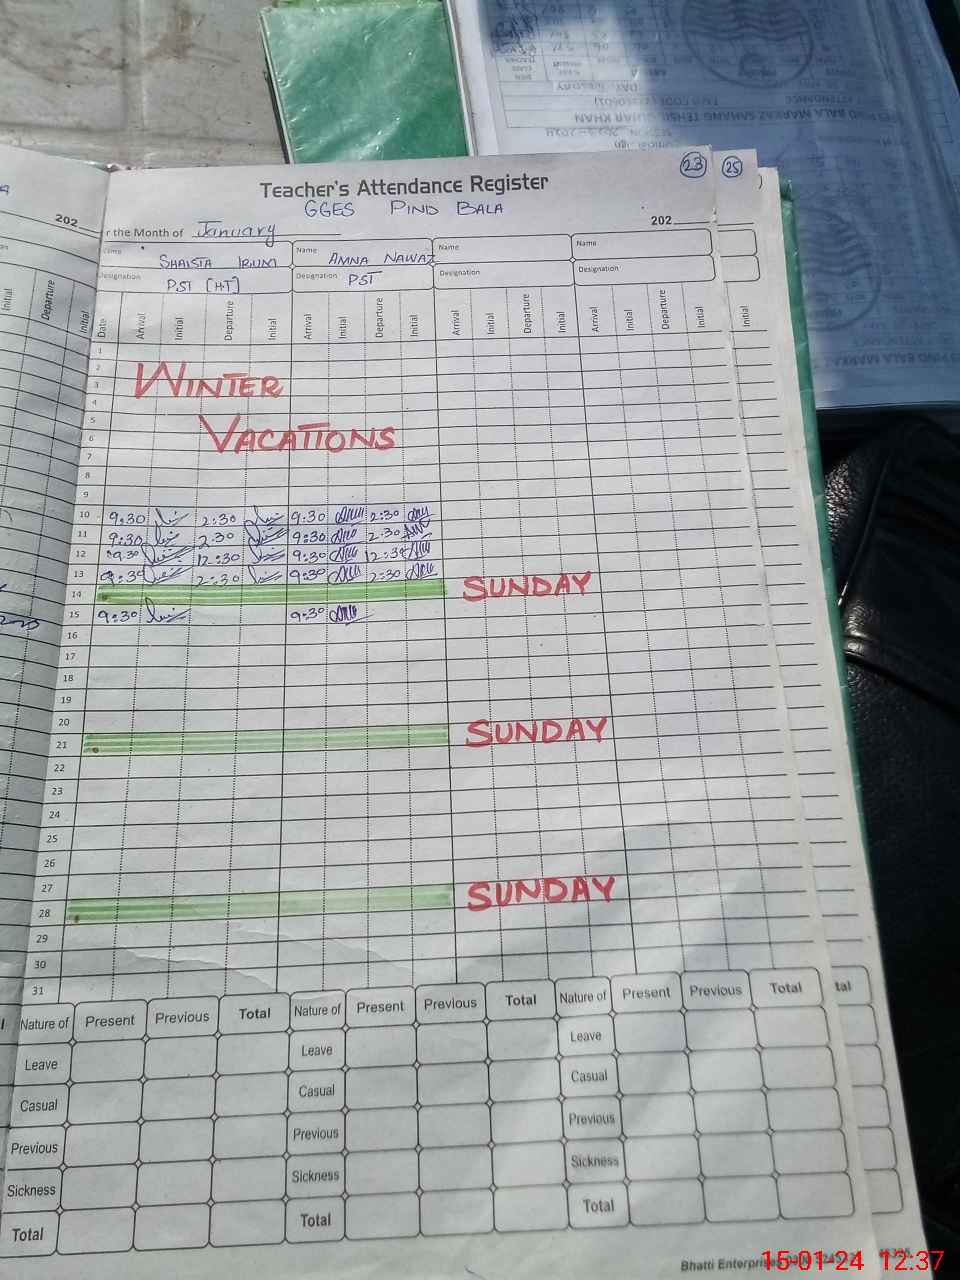 23
25
Teacher's Attendance Register
GGES PIND BALA
202
202
r the Month of January
Name SHAISTA IRUM Name AMNA NAWAZ Name Name
Designation PST [H.T] Designation PST Designation Designation
Initial Departure Initial Date Arrival Initial Departure Initial Arrival Initial Departure Initial Arrival Initial Departure Initial Arrival Initial Departure Initial Initial
1
2
WINTER
3
4
5
VACATIONS
6
7
8
9
10 9:30 2:30 9:30 2:30
11 9:30 2:30 9:30 2:30
12 9:30 12:30 9:30 12:30
13 9:30 2:30 9:30 2:30
14 SUNDAY
15 9:30 9:30
16
17
18
19
20
21 SUNDAY
22
23
24
25
26
27
28 SUNDAY
29
30
31
Nature of Present Previous Total Nature of Present Previous Total Nature of Present Previous Total tal
Leave Leave Leave
Casual Casual Casual
Previous Previous Previous
Sickness Sickness Sickness
Total Total Total
Bhatti Enterprises
15-01-24 12:37